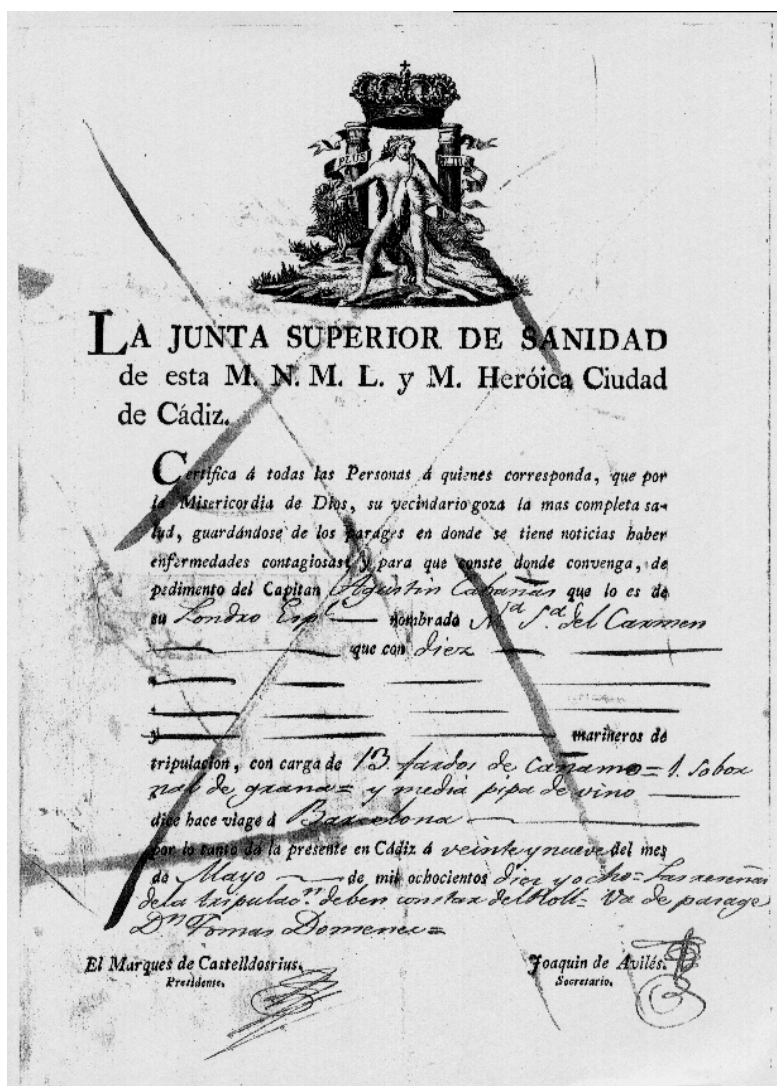 PLUS ULTRA
LA JUNTA SUPERIOR DE SANIDAD
de esta M. N. M. L. y M. Heróica Ciudad
de Cádiz.
Certifica á todas las Personas á quienes corresponda, que por
la Misericordia de Dios, su vecindario goza la mas completa sa-
lud, guardándose de los parages en donde se tiene noticias haber
enfermedades contagiosas; y para que conste donde convenga, de
pedimento del Capitan Agustin Cabañas que lo es de
su Londro Esp.l nombrado N.a S.a del Carmen
que con diez
y marineros de
tripulacion, con carga de 13. fardos de Cañamo = 1. sobor
nal de grana = y media pipa de vino
dice hace viage á Barcelona
por lo tanto da la presente en Cádiz á veinte y nueve del mes
de Mayo de mil ochocientos diez y ocho = Las reseñas
de la tripulac.n deben constar del Roll = Va de parage
D.n Tomas Domenec =
El Marques de Castelldosrius. Joaquin de Avilés.
Presidente. Secretario.